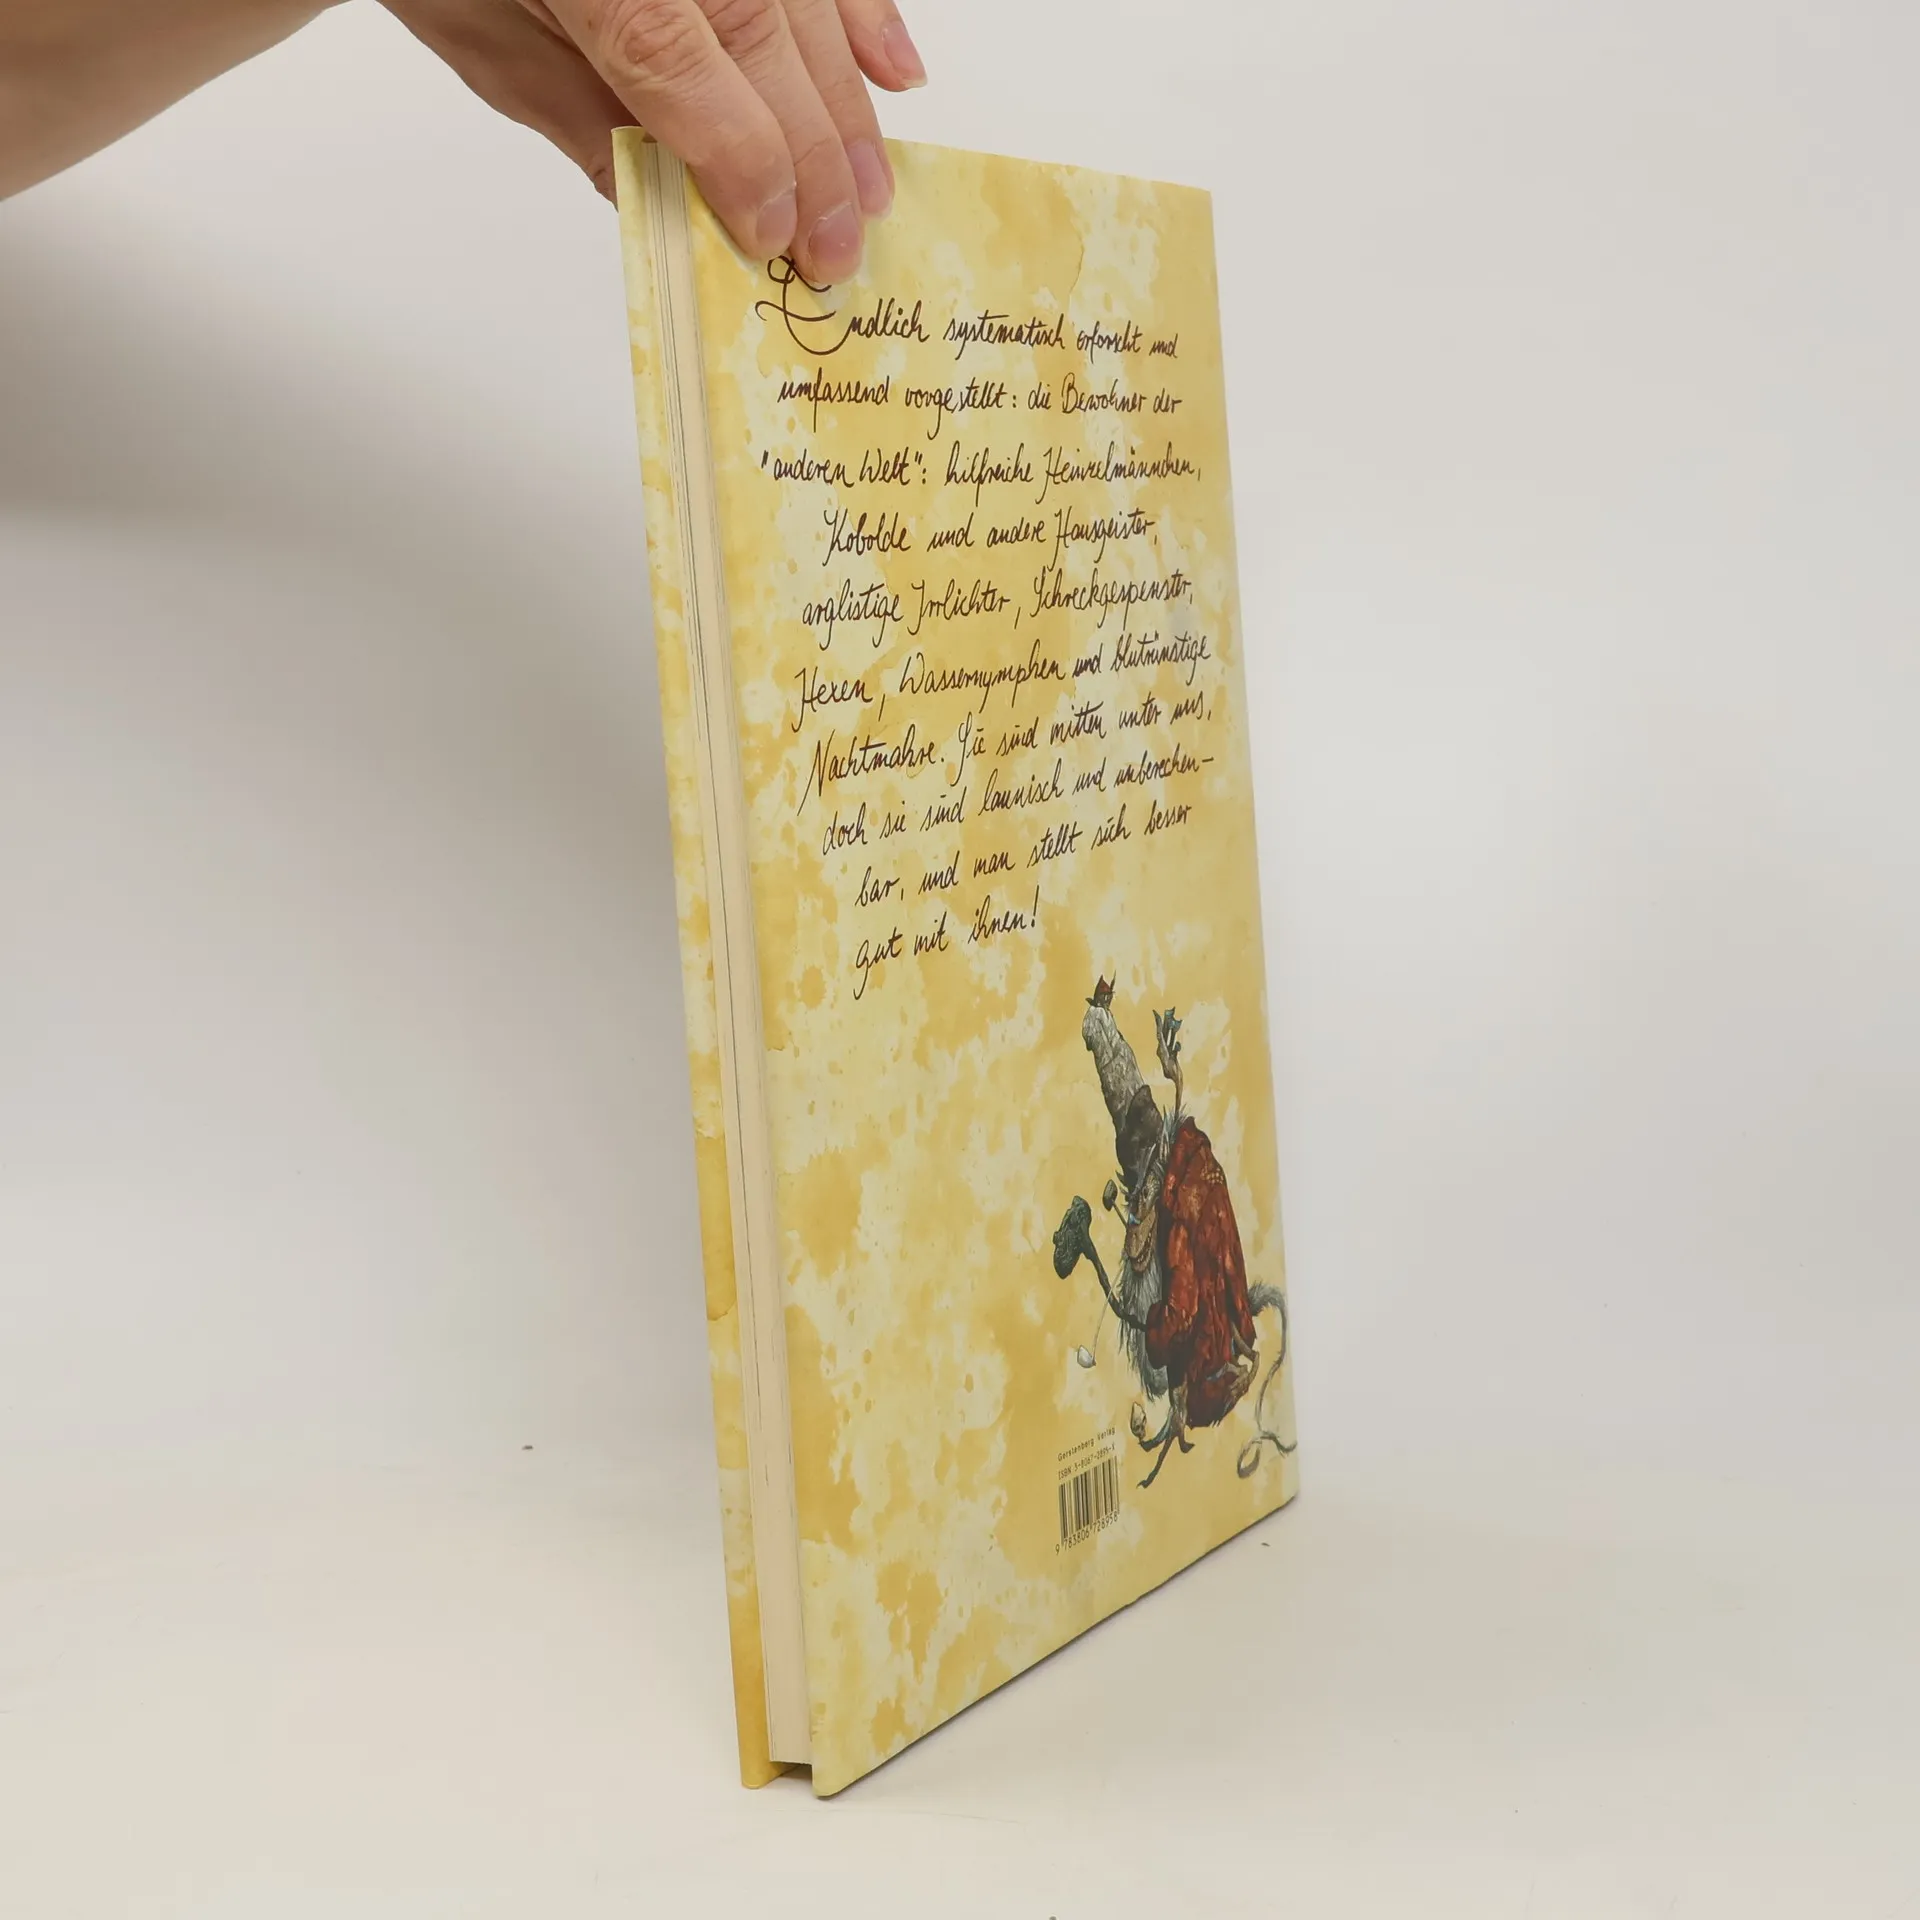 Endlich systematisch erforscht und
umfassend vorgestellt: die Bewohner der
"anderen Welt": hilfreiche Heinzelmännchen,
Kobolde und andere Hausgeister,
arglistige Irrlichter, Schreckgespenster,
Hexen, Wassernymphen und blutrünstige
Nachtmahre. Sie sind mitten unter uns,
doch sie sind launisch und unberechen-
bar, und man stellt sich besser
gut mit ihnen!
Gerstenberg Verlag
ISBN 3-8067-2895-X
9 783806 728958